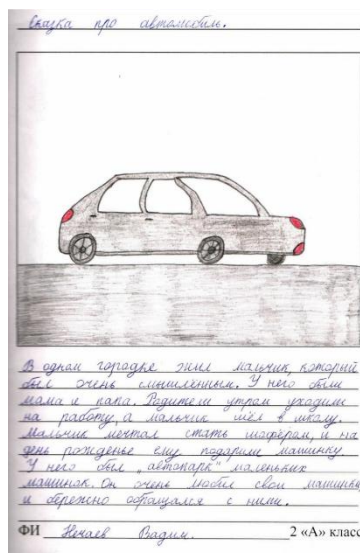 Сказка про автомобиль.
В одном городке жил мальчик, который
был очень смышлённым. У него были
мама и папа. Родители утром уходили
на работу, а мальчик шёл в школу.
Мальчик мечтал стать шофёром, и на
день рожденье ему подарили машинку.
У него был „автопарк" маленьких
машинок. Он очень любил свои машинки
и бережно обращался с ними.
ФИ Нечаев Вадим. 2 «А» класс